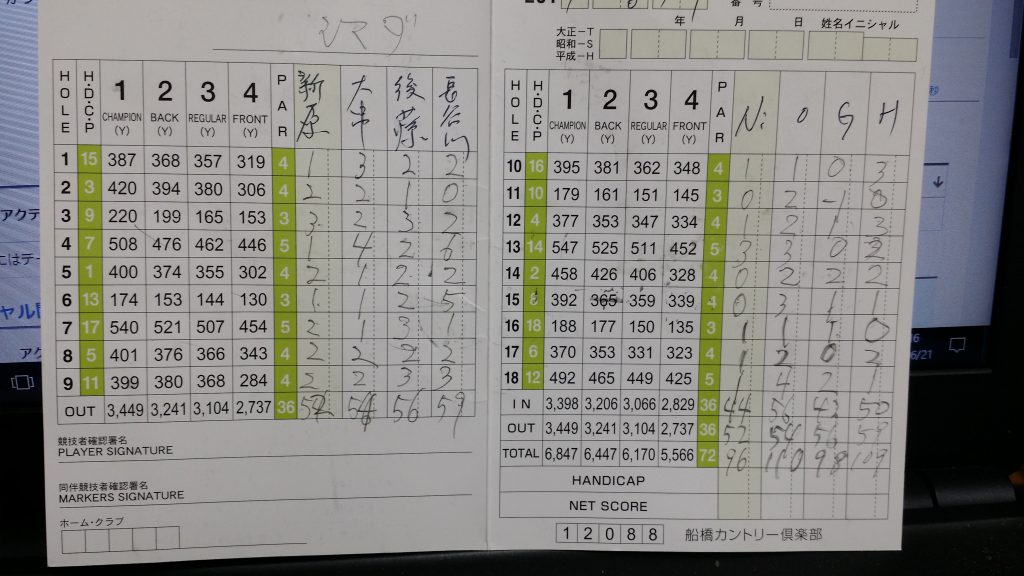 シマダ
HOLE H・D・C・P 1 CHAMPION (Y) 2 BACK (Y) 3 REGULAR (Y) 4 FRONT (Y) PAR 新原 後藤 長谷川
1 15 387 368 357 319 4 1 3 2 2
2 3 420 394 380 306 4 2 2 1 0
3 9 220 199 165 153 3 3 2 3 2
4 7 508 476 462 446 5 1 4 2 6
5 1 400 374 355 302 4 2 1 2 2
6 13 174 153 144 130 3 1 1 2 5
7 17 540 521 507 454 5 2 1 3 1
8 5 401 376 366 343 4 2 2 2 2
9 11 399 380 368 284 4 2 2 3 3
OUT 3,449 3,241 3,104 2,737 36 52 54 56 59
競技者確認署名
PLAYER SIGNATURE
同伴競技者確認署名
MARKERS SIGNATURE
ホーム・クラブ
年 月 日 姓名イニシャル
大正－T
昭和－S
平成－H
HOLE H・D・C・P 1 CHAMPION (Y) 2 BACK (Y) 3 REGULAR (Y) 4 FRONT (Y) PAR Ni O G H
10 16 395 381 362 348 4 1 1 0 3
11 10 179 161 151 145 3 0 2 -1 0
12 4 377 353 347 334 4 1 2 1 3
13 14 547 525 511 452 5 3 3 0 2
14 2 458 426 406 328 4 0 2 2 2
15 8 392 365 359 339 4 0 3 1 1
16 18 188 177 150 135 3 1 1 1 0
17 6 370 353 331 323 4 1 2 0 2
18 12 492 465 449 425 5 1 4 2 1
IN 3,398 3,206 3,066 2,829 36 44 56 42 50
OUT 3,449 3,241 3,104 2,737 36 52 54 56 59
TOTAL 6,847 6,447 6,170 5,566 72 96 110 98 109
HANDICAP
NET SCORE
12088 船橋カントリー倶楽部